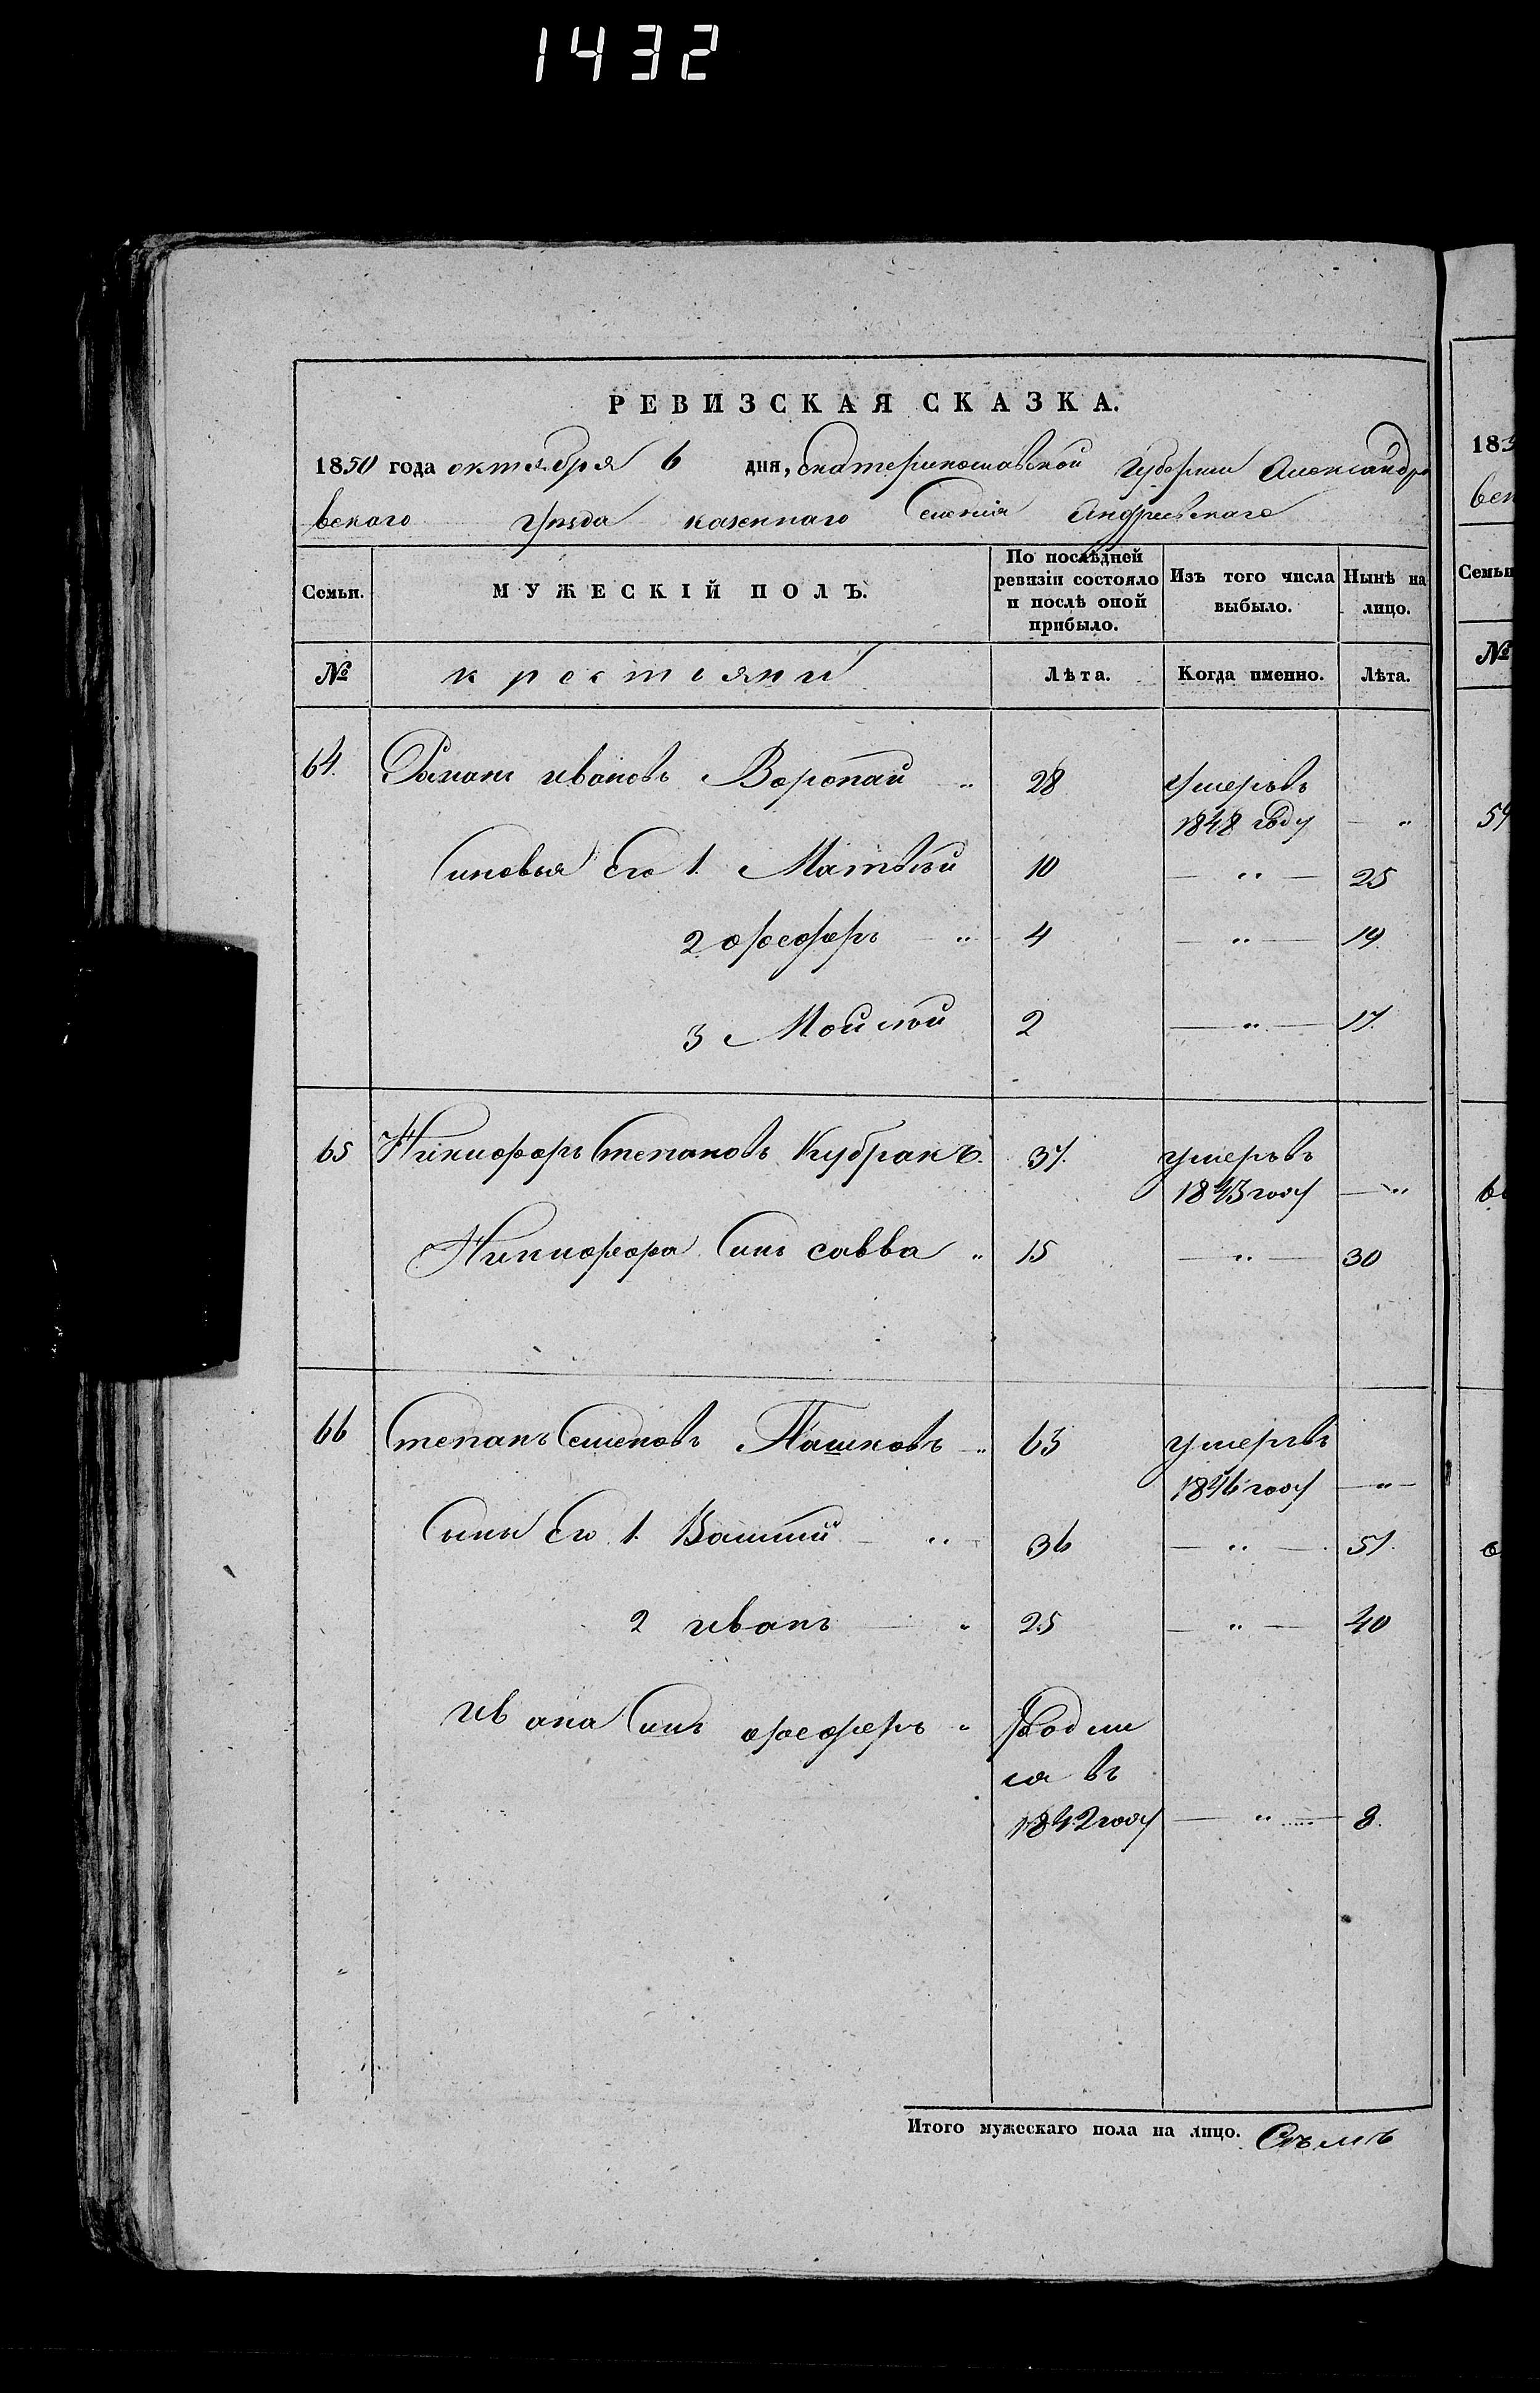 1432
РЕВИЗСКАЯ СКАЗКА.
1850 года октября 6 дня, екатеринославской губернии Александро
вского уѣзда казеннаго Селенія Андреевскаго
Семьи. МУЖЕСКІЙ ПОЛЪ. По послѣдней ревизіи состояло и послѣ оной прибыло. Изъ того числа выбыло. Нынѣ на лицо.
№ крестіяни Лѣта. Когда именно. Лѣта.
64. Романъ ивановъ Воропай 28 умеръвъ
1848 году
Синовья Его 1. Матвѣй 10 — „ — 25
2 феодоръ 4 — „ — 19.
3 Мойсей 2 — „ — 17.
65 Никифоръ Степановъ Кубракъ. 37. умеръвъ
1843 году
Никифора Синъ савва 15 — „ — 30
66 Степанъ Семеновъ Пашковъ 63 умеръвъ
1846 году
Сини Его 1. Василий 36 — „ — 51.
2 иванъ 25 — „ — 40
ивана Синъ феодоръ родил
ся въ
1842 году — „ — 8.
Итого мужескаго пола на лицо. Семъ
183
вск
Семьи
№